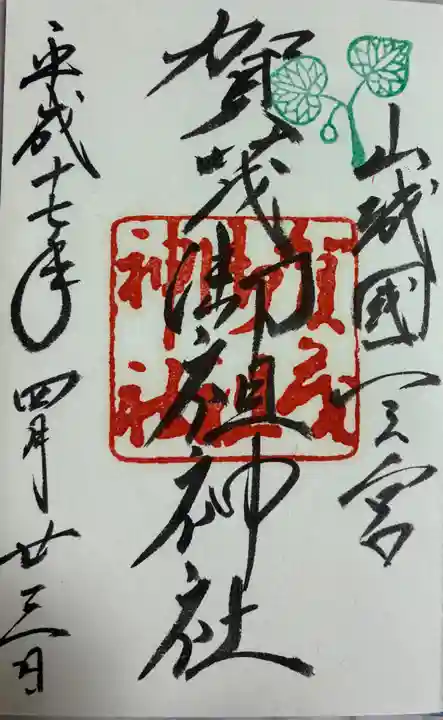 山城國一之宮
賀茂御祖神社
賀茂
御祖
神社
平成十七年四月廿三日